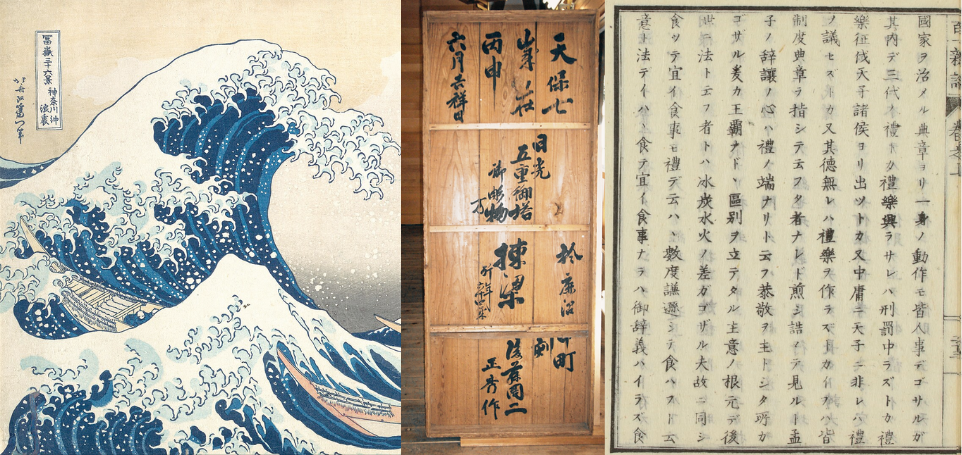 冨嶽三十六景 神奈川沖
浪裏
北斎改為一筆
天保七
丙申
六月吉祥日
日光
五重御塔
御彫物
方
於鹿沼
棟梁
町
刻
後藤周二
正秀作
百一新論 巻之上
國家ヲ治メル典章ヨリ一身ノ動作モ皆人事デゴザルガ
其内デ三代ノ禮トカ禮樂興ラサレハ刑罰中ラズトカ禮
樂征伐天子諸侯ヨリ出ツトカ又中庸ニ天子ニ非レハ禮
ヲ議セズトカ又其德無レハ禮樂ヲ作ラズ
制度典章ヲ指シテ云フタ者ナレド煎シ詰メテ見ルト孟
子ノ辭讓ノ心ハ禮ノ端ナリト云フ恭敬ヲ主トシタ所カ
コザル爰カ王覇ナドヽ區別ヲ立テタル主意ノ根元デ後
世法ト云フ者トハ氷炭水火ノ差カゴザル夫故ニ同シ
食タテ宜イ食事モ禮デ云ハヽ數度謙遜シテ食ハフト云
意法テイハヽ食テ宜イ食事ナラハ御辭義ハイラズ食